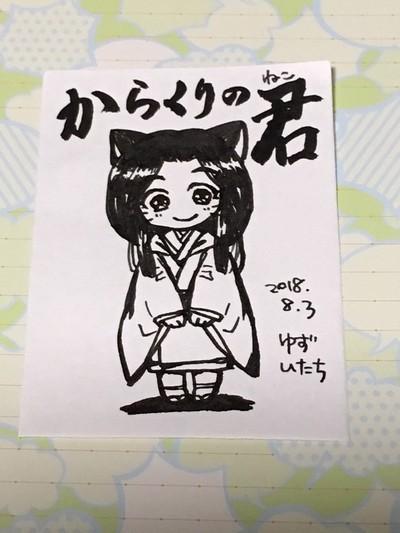 からくりの君
ねこ
2018.
8.3
ゆず
いたち